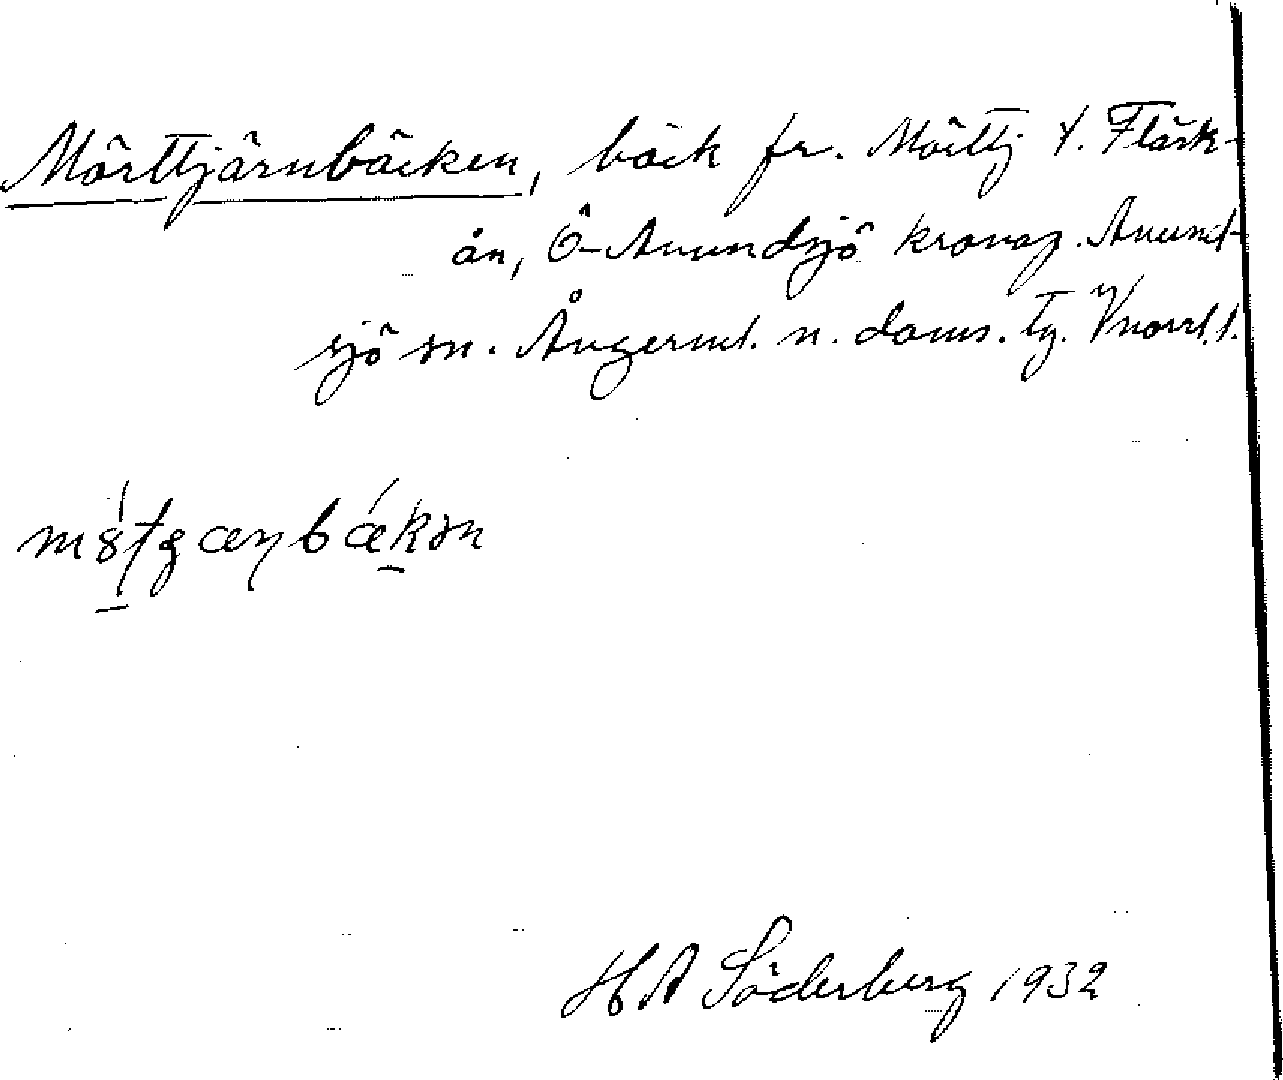 Mörttjärnbäcken, bäck fr. Mörttj t. Flärk-
ån, Ö-Anundsjö kronop. Anund-
sjö sn. Ångerml. n. doms. tg. Vnorrl. l.
H A Söderberg 1932